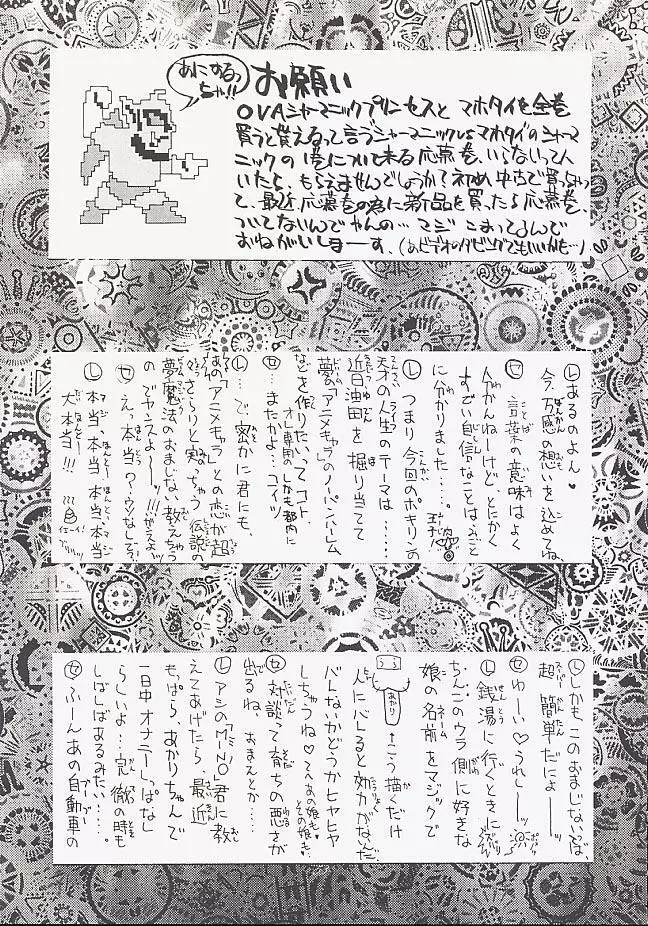 あにするっちゃ!!
お願い
OVAシャーマニックプリンセスとマホタイを全巻
買うと貰えるって言うシャーマニックVSマホタイのシャーマ
ニックの1巻について来る応募巻、いらないって人
いたら、もらえませんでしょうか?初め中古で買っちゃっ
て、最近、応募巻の為に新品を買ったら応募巻、
ついてないんでやんの…マジこまってるんで
おねがいしまーす、(あとビデオのダビングでもいいかも…)
Ⓛあるのよん♥
今、万感の想いを込めてね、
㋝言葉の意味はよく
分かんねーけど、とにかく
すごい自信なことは
に分かりました……。
Ⓛつまり今回のポキリンの
天才の人生のテーマは……
近日油田を掘り当てて
夢の「アニメキャラ」のノーパンハーレム
などを作りたいってコト、
オレ専用のしかも都内に
㋝…またかよ…コイツ
Ⓛ…で、密かに君にも、
あの「アニメキャラ」との恋が超
さらりと実っちゃう伝説の
夢魔法のおまじない教えちゃう
のでヤンスよーッ!!
㋝えっ本当?ウソなしろ?
Ⓛ本当、本当、本当、本当
大本当!!!
イエーイ!
Ⓛしかもこのおまじないは、
超簡単だによーッ
㋝わーい♡うれしーッ
Ⓛ銭湯に行くときに
ちんこのウラ側に好きな
娘の名前をマジックで
あかり
←こう描くだけ
人にバレると効力がないんだ
バレないかどうかヒヤヒヤ
しちゃうね♡てへあの娘も♥その娘も
㋝対談って育ちの悪さが
出るね、おまえとか……
ⓁアシのMINO君に教
えてあげたら、最近
もっぱら、あかりちゃんで
一日中オナニーしっぱなし
らしいよ…完徹の時も
しばしばあるみたい……。
㋝ふーんあの自動車の